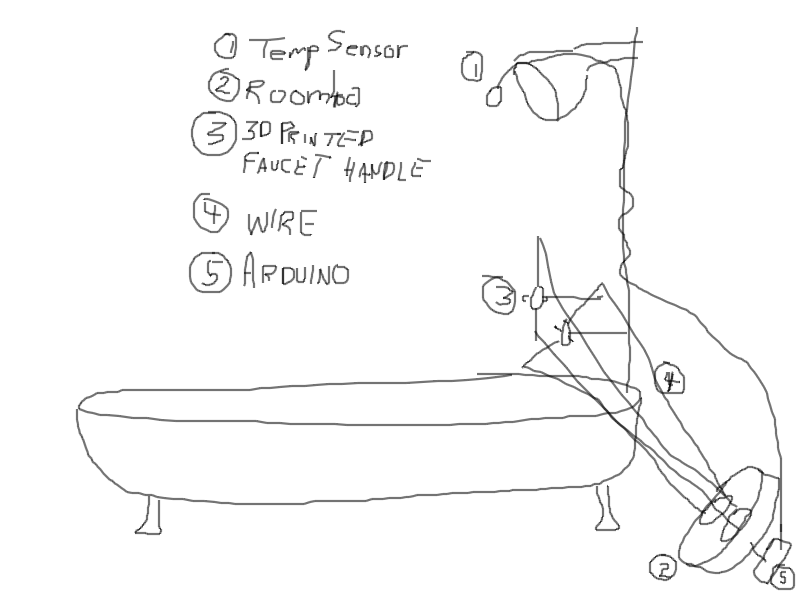 1 Temp Sensor
2 Roomba
3 3D PRINTED
FAUCET HANDLE
4 WIRE
5 ARDUINO
1
3
4
2
5